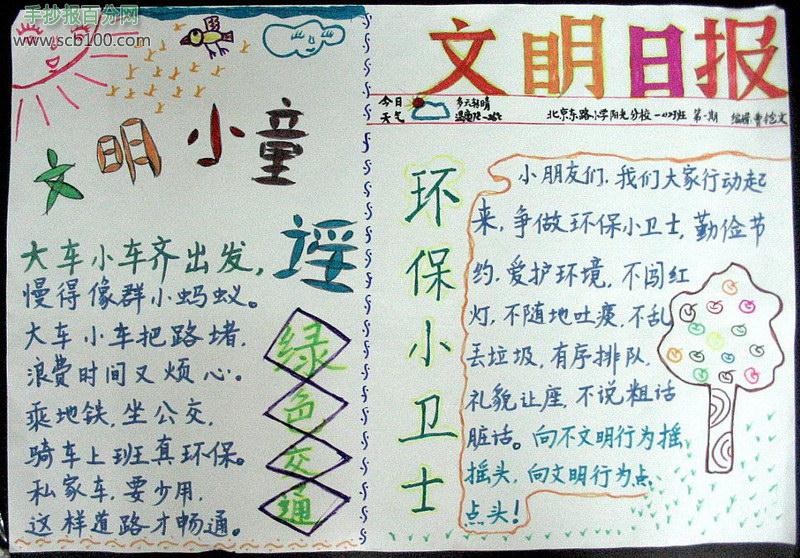 手抄报百分网
www.scb100.com
文明小童谣
大车小车齐出发，
慢得像群小蚂蚁。
大车小车把路堵，
浪费时间又烦心。
乘地铁，坐公交，
骑车上班真环保。
私家车，要少用，
这样道路才畅通。
绿色交通
文明日报
今日
天气
多云转晴
北京东路小学阳光分校
第一期
编辑
环保小卫士
小朋友们，我们大家行动起
来，争做环保小卫士，勤俭节
约，爱护环境，不闯红
灯，不随地吐痰，不乱
丢垃圾，有序排队，
礼貌让座，不说粗话
脏话。向不文明行为摇
摇头，向文明行为点
点头！